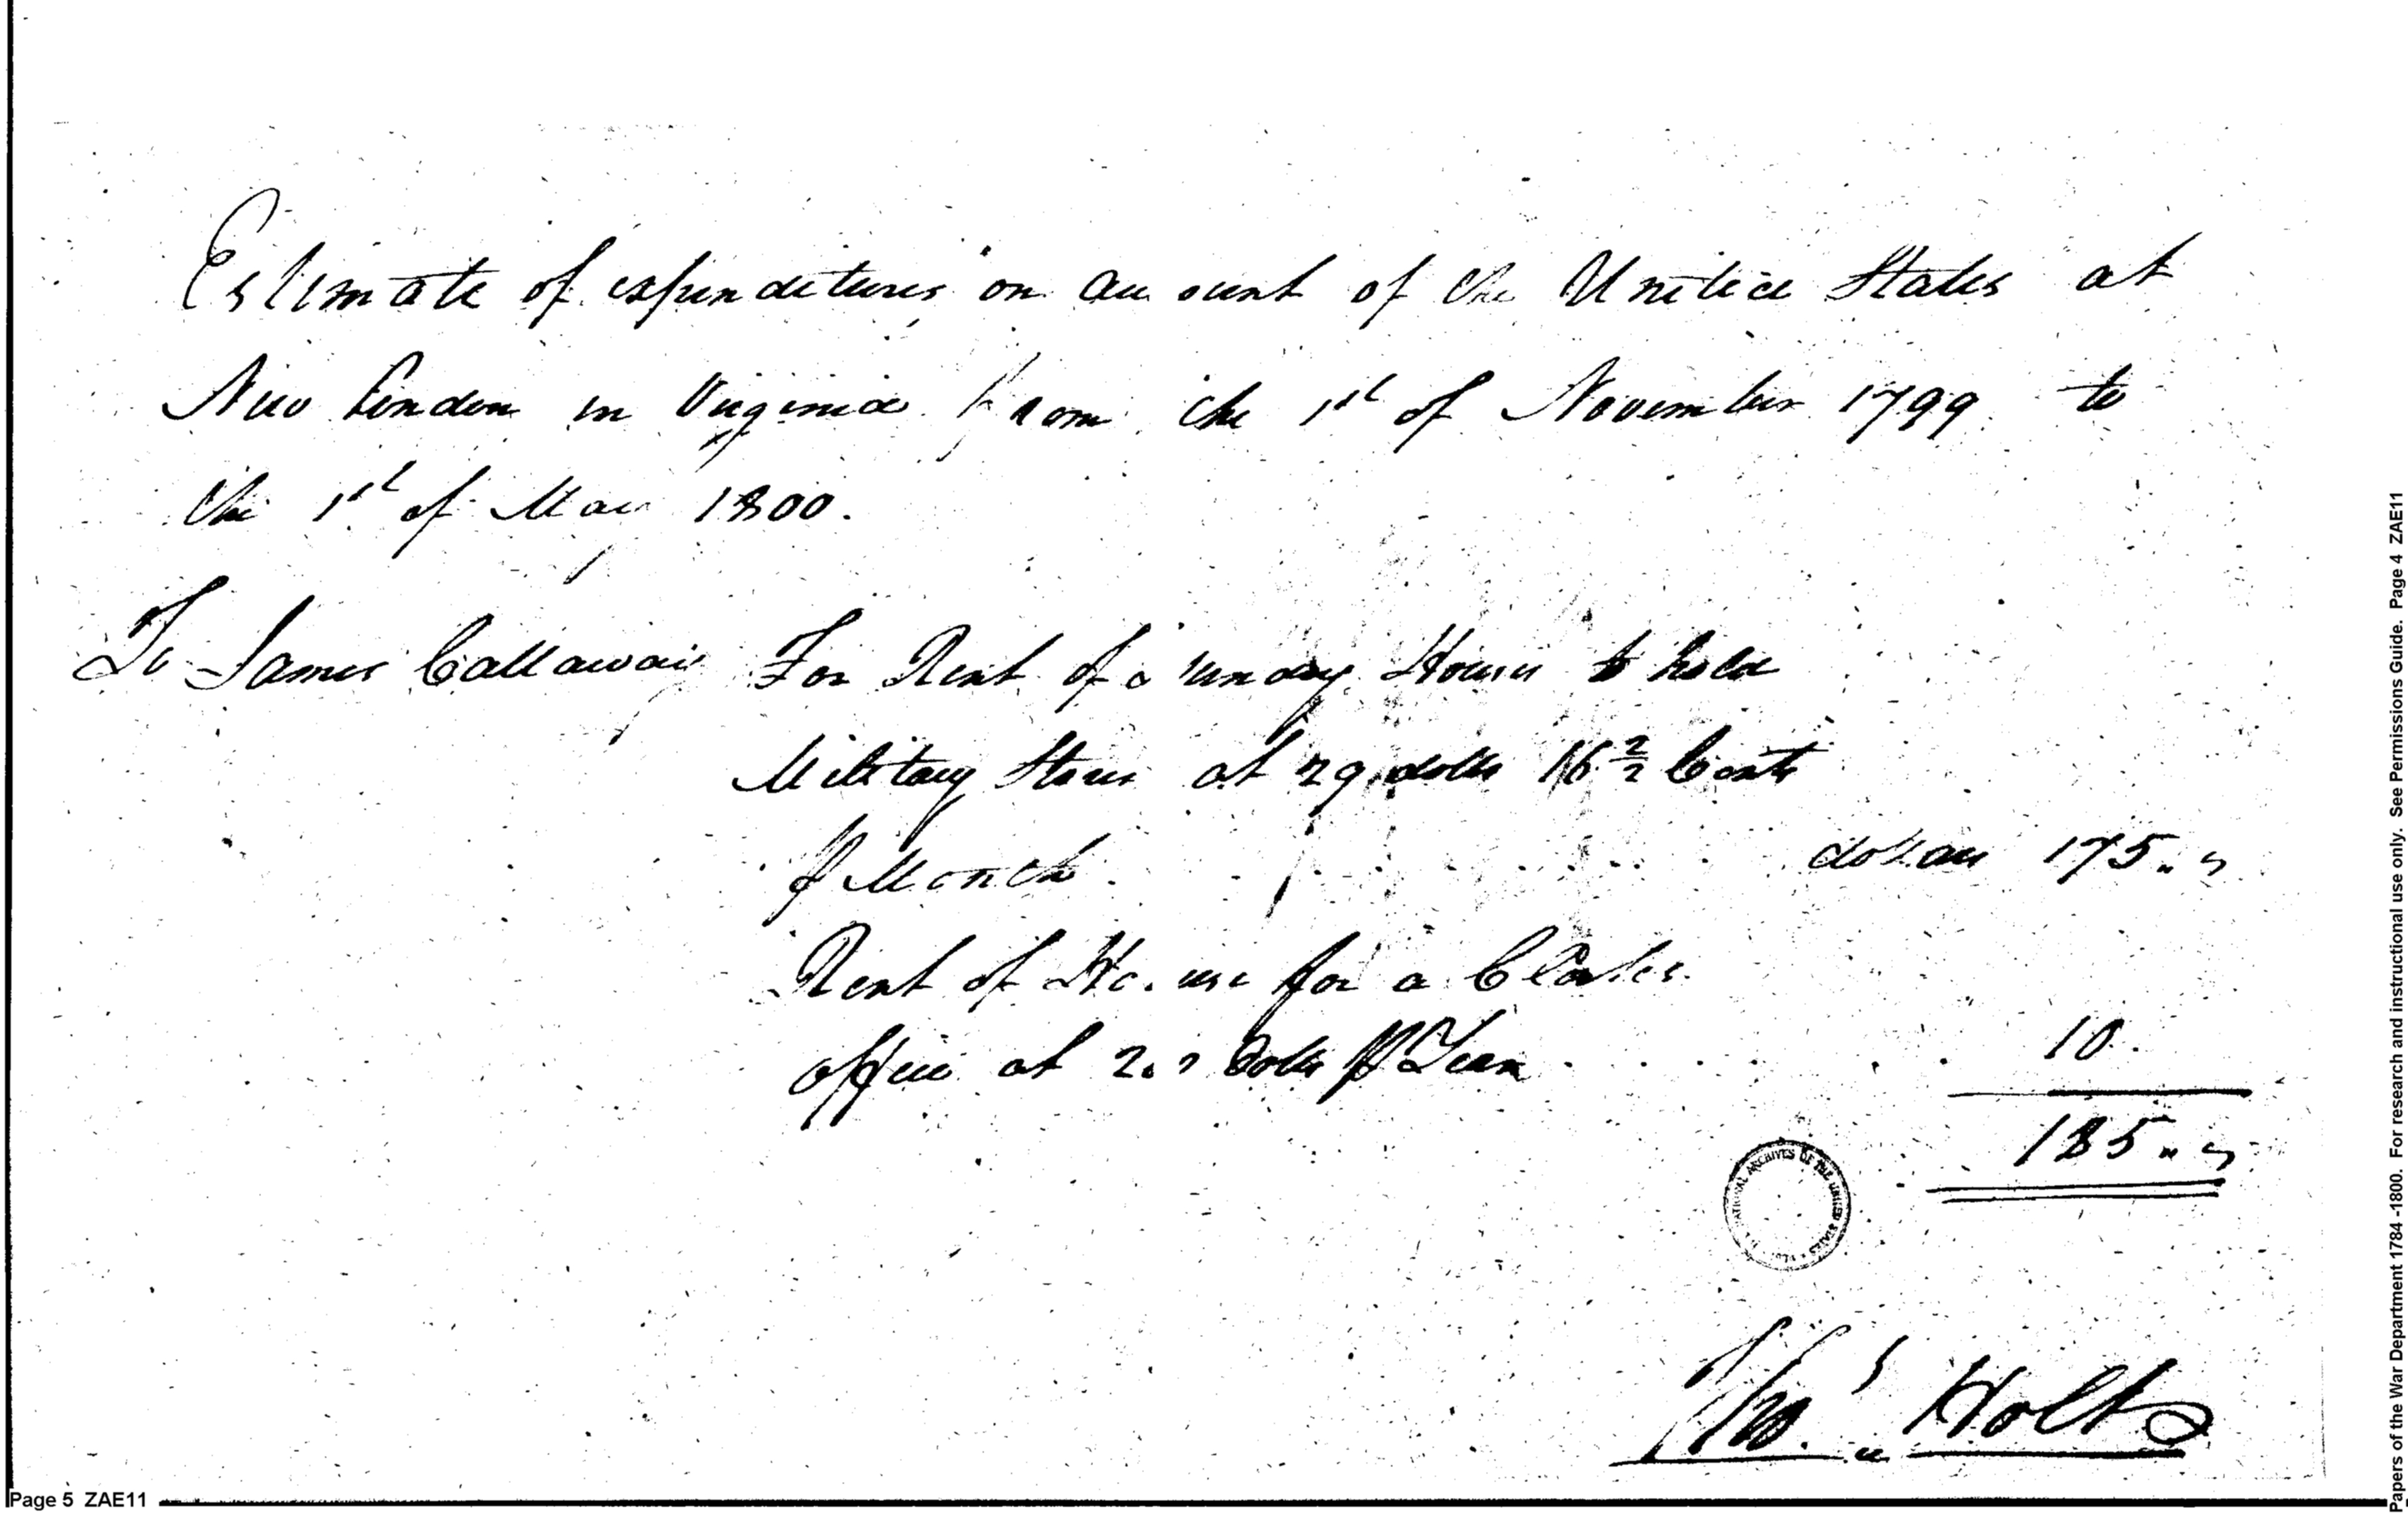 Estimate of expenditures on account of the United States at
New London in Virginia from the 1st of November 1799 to
the 1st of May 1800.
To James Callaway For Rent of sundry Houses to hold
Military Stores at 29 dolls 16 2/2 Cents
℔ Month . . . . . . dollars 175. "
Rent of House for a Clarkes
office at 20 Dolls ℔ Year . . . . . 10.
185. "
NATIONAL ARCHIVES OF THE UNITED STATES
Thos. Holt
Page 5 ZAE11
Papers of the War Department 1784 -1800. For research and instructional use only. See Permissions Guide. Page 4 ZAE11